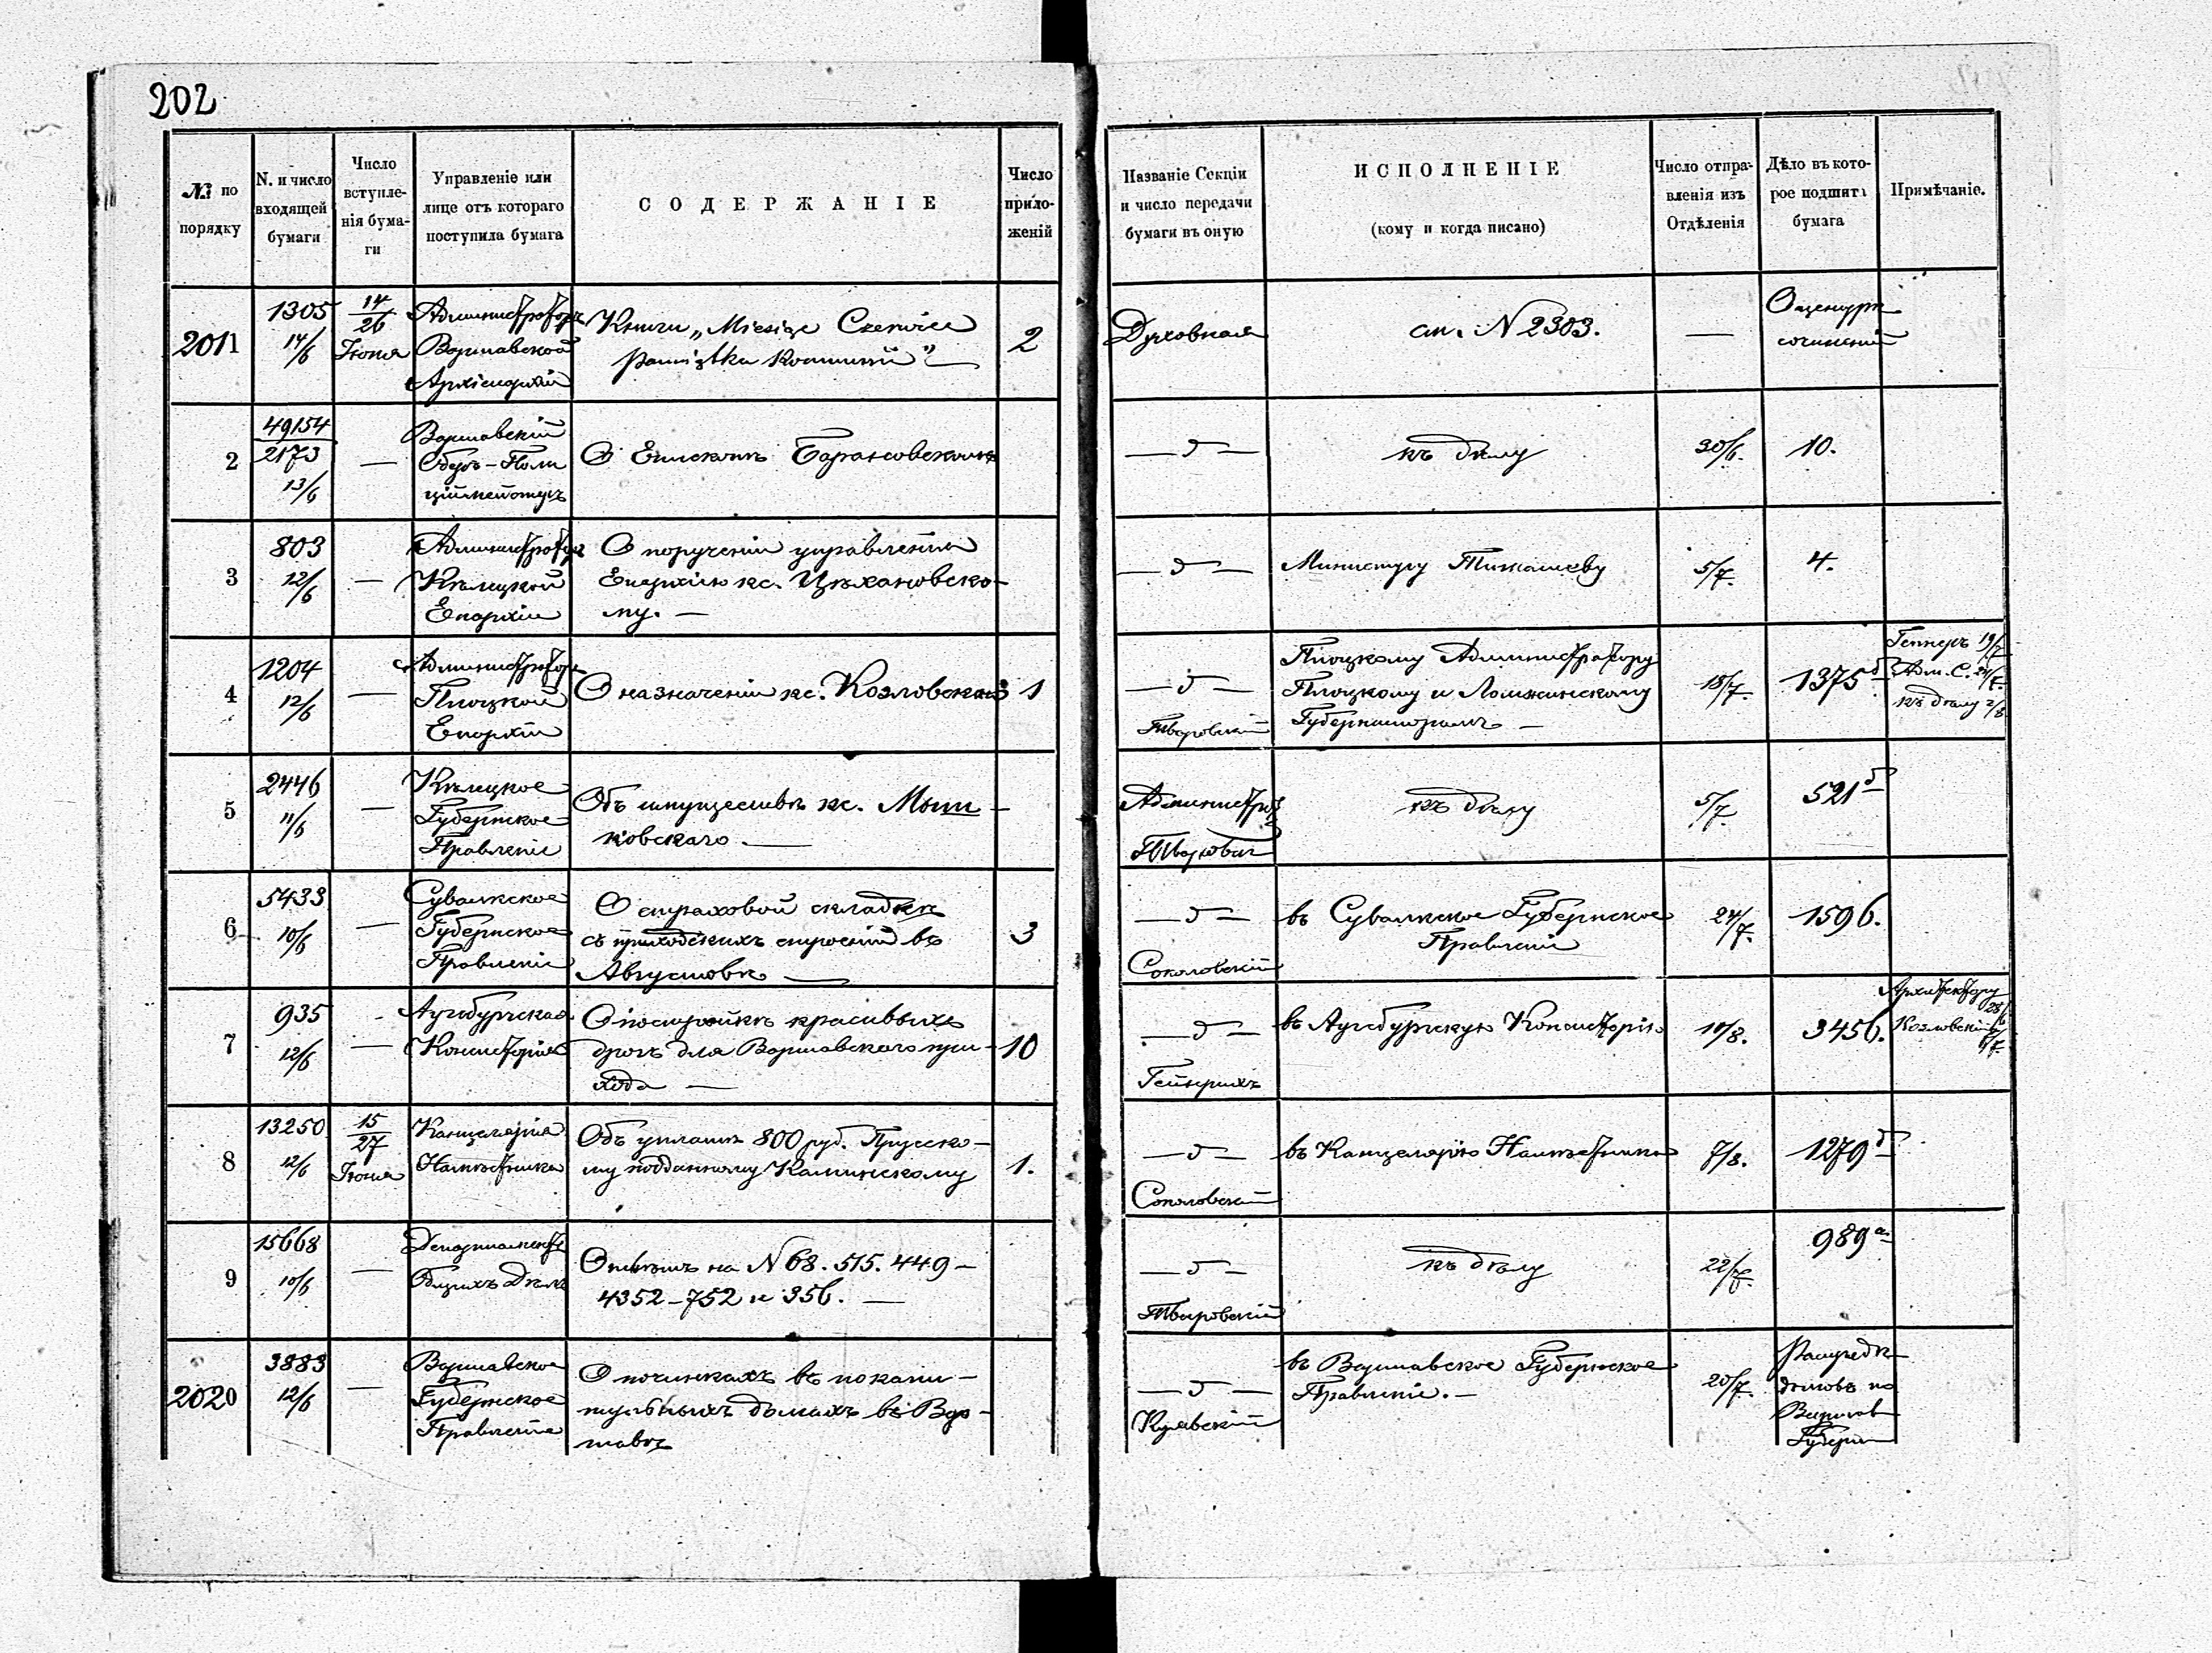 202
№ по порядку
N. и число входящей бумаги
Число вступле-нія бума-ги
Управленіе или лице отъ котораго поступила бумага
СОДЕРЖАНІЕ
Число прило-женій
Названіе Секціи и число передачи бумаги въ оную
ИСПОЛНЕНІЕ
(кому и когда писано)
Число отпра-вленія изъ Отдѣленія
Дѣло въ кото-рое подшита бумага
Примѣчаніе.
2011
1305
14/6
14/26 Іюня
Администраторъ
Варшавской
Архіепархіи
Книги „Miesiąc Czerwiec
pamiątka Kommunii"
2
Духовная
см. N 2303.
—
О цензурѣ
сочиненій
2
49154
2173
13/6
—
Варшавскій
Оберъ-Поли
ціймейстеръ
О Епископѣ Барановскомъ
— д —
къ дѣлу
30/6.
10.
3
803
12/6
—
Администраторъ
Кѣлецкой
Епархіи
О порученіи управленія
Епархіею кс. Цѣхановско-
му. —
— д —
Министру Тимашеву
5/7.
4.
4
1204
12/6
—
Администраторъ
Плоцкой
Епархіи
О назначеніи кс. Козловскій
1
— д —
Тваровскій
Плоцкому Администратору
Плоцкому и Ломжинскому
Губернаторамъ —
18/7.
1375 б
19/7
Адм. С. 24/7.
къ дѣлу 2/8
5
2446
11/6
—
Кѣлецкое
Губернское
Правленіе
Объ имуществѣ кс. Мыш-
ковскаго. —
Администрат
къ дѣлу
5/7.
521 б
6
5433
10/6
—
Сувалкское
Губернское
Правленіе
О страховой складкѣ
съ приходскихъ строеній въ
Августовѣ —
3
— д —
Соколовскій
въ Сувалкское Губернское
Правленіе
24/7.
1596.
7
935
12/6
—
Аугсбургская
Консисторія
О постройкѣ красивыхъ
дрогъ для Варшавскаго при-
хода —
10
— д —
Гейнрихъ
въ Аугсбургскую Консисторію
10/8.
3456.
Архитектору
28/6
Козловскій
8
13250
12/6
15/27
Іюня
Канцелярія
Намѣстника
Объ уплатѣ 800 руб. Прусско-
му подданному Каминскому
1.
— д —
Соколовскій
въ Канцелярію Намѣстника
7/8.
1279 б
9
15668
10/6
—
Департаментъ
Общихъ Дѣлъ
Отвѣтъ на N 68. 515. 449-
4352-752 и 356. —
— д —
Тваровскій
къ дѣлу
22/7.
989 а.
2020
3883
12/6
—
Варшавское
Губернское
Правленіе
О починкахъ въ покапи-
тульныхъ домахъ въ Вар-
шавѣ
— д —
Куявскій
въ Варшавское Губернское
Правленіе. —
20/7.
Распредѣ
домовъ по
Варшав
Губерн